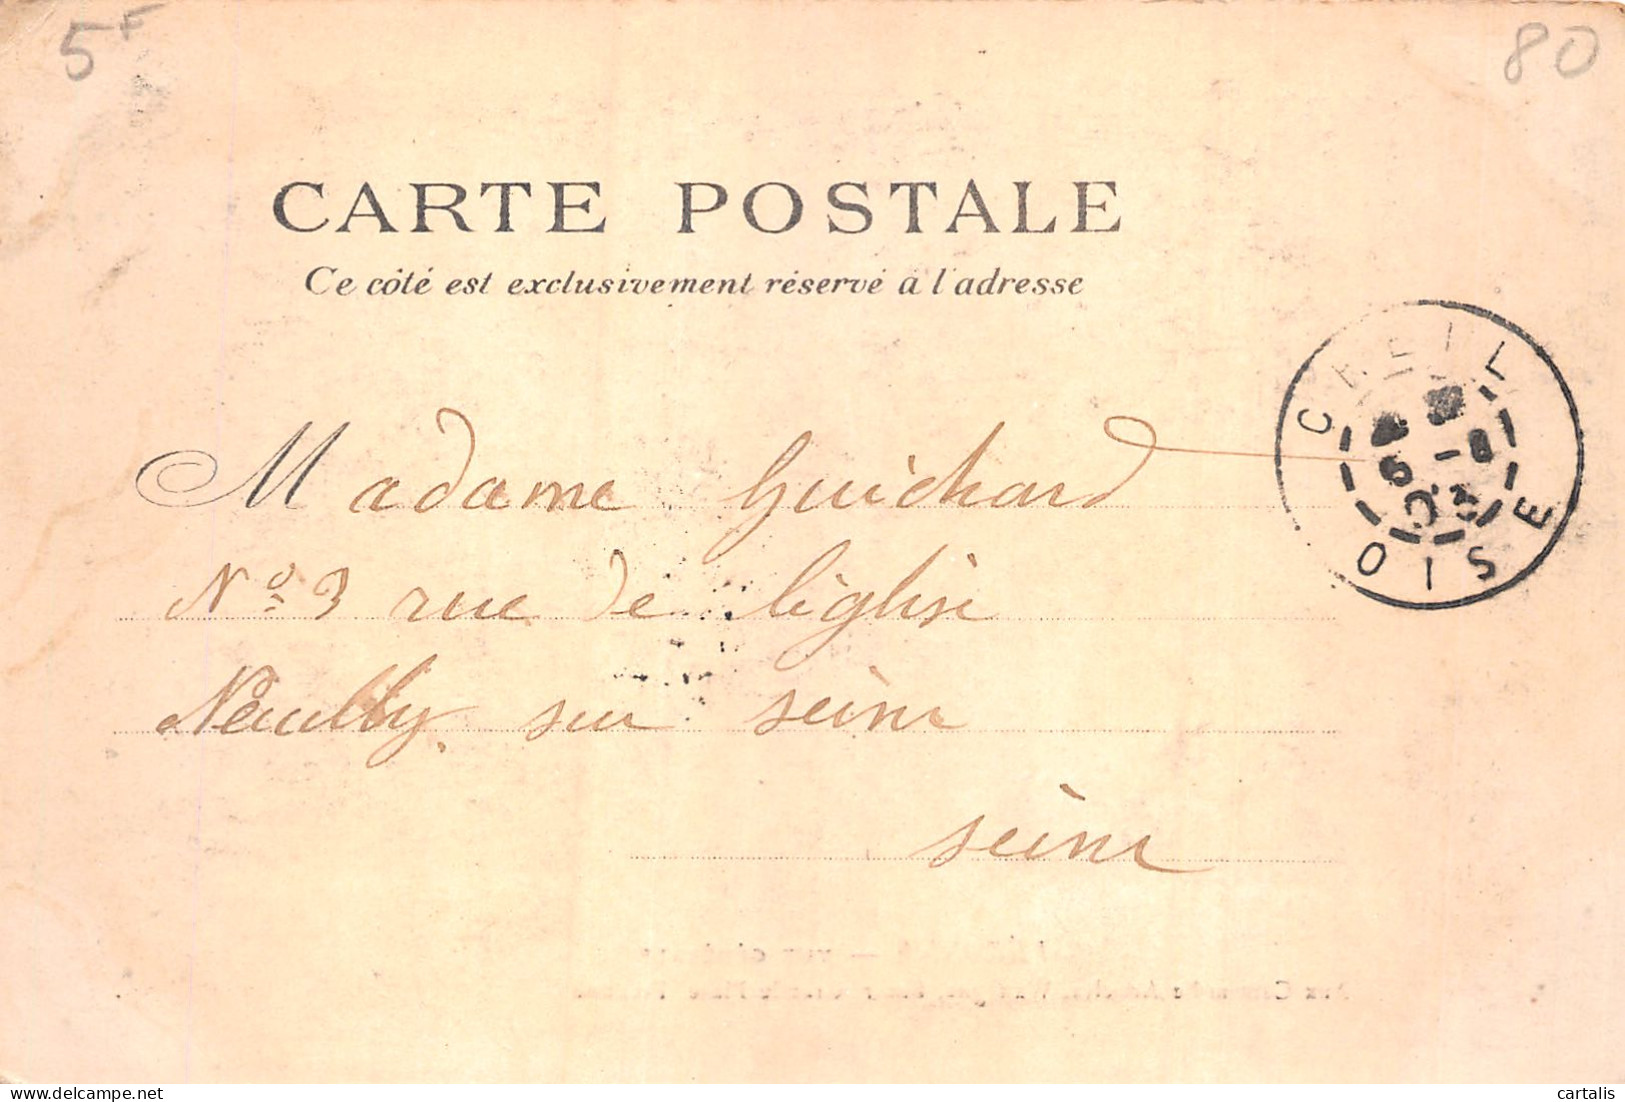 5F
80
CARTE POSTALE
Ce côté est exclusivement réservé à l'adresse
CREIL
OISE
Madame Guichard
No 3 rue de léglise
Neuilly sur seine
seine
delcampe.net
cartalis